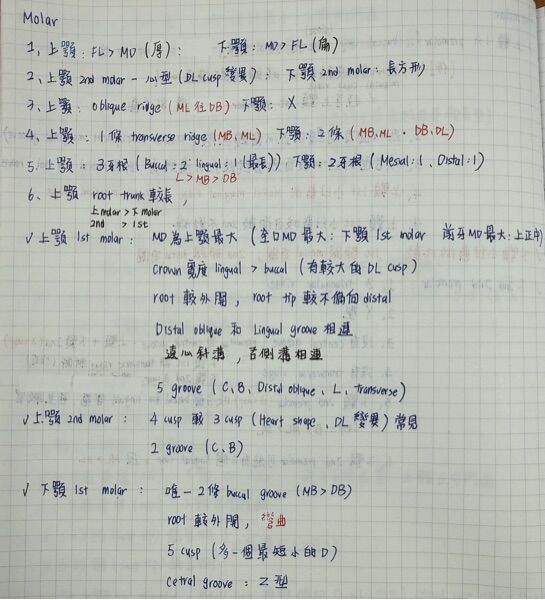 Molar
1、上顎：FL > MD (厚)： 下顎：MD > FL (扁)
2、上顎 2nd molar - 心型 (DL cusp 變異)： 下顎 2nd molar：長方形
3、上顎：oblique ridge (ML 往 DB) 下顎： X
4、上顎 1條 transverse ridge (MB、ML) 下顎：2條 (MB、ML · DB、DL)
5、上顎：3牙根 (Buccal：2 lingual：1 (最長)) 下顎：2牙根 (Mesial：1、Distal：1)
L > MB > DB
6、上顎 root trunk 較長，
上molar > 下molar
2nd > 1st
√ 上顎 1st molar： MD 為上顎最大 (全口MD最大：下顎 1st molar 前牙MD最大：上正中)
Crown 寬度 lingual > buccal (有較大的 DL cusp)
root 較外開，root tip 較不偏向 distal
Distal oblique 和 Lingual groove 相連
遠心斜溝，舌側溝相連
5 groove (C、B、Distal oblique、L、transverse)
√ 上顎 2nd molar： 4 cusp 較 3 cusp (Heart shape、DL 變異) 常見
2 groove (C、B)
√ 下顎 1st molar： 唯一 2條 buccal groove (MB > DB)
root 較外開，彎曲
5 cusp (多一個最短小的 D)
Cetral groove：Z型